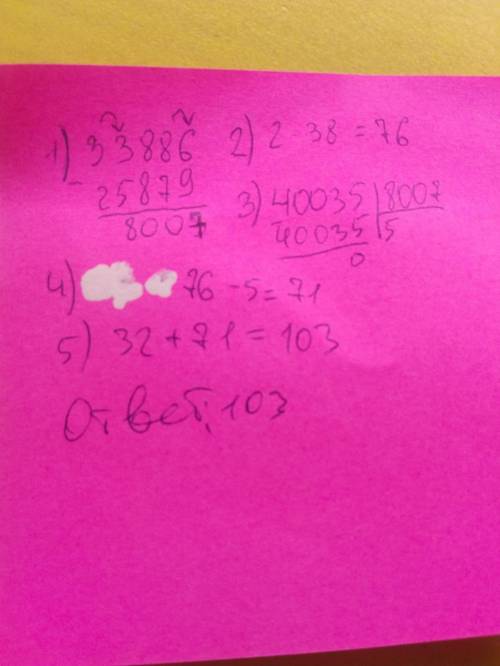 1) 33886 2) 2 · 38 = 76
- 25879
8007 3) 40035 | 8007
40035 | 5
0
4) 76 - 5 = 71
5) 32 + 71 = 103
Ответ: 103